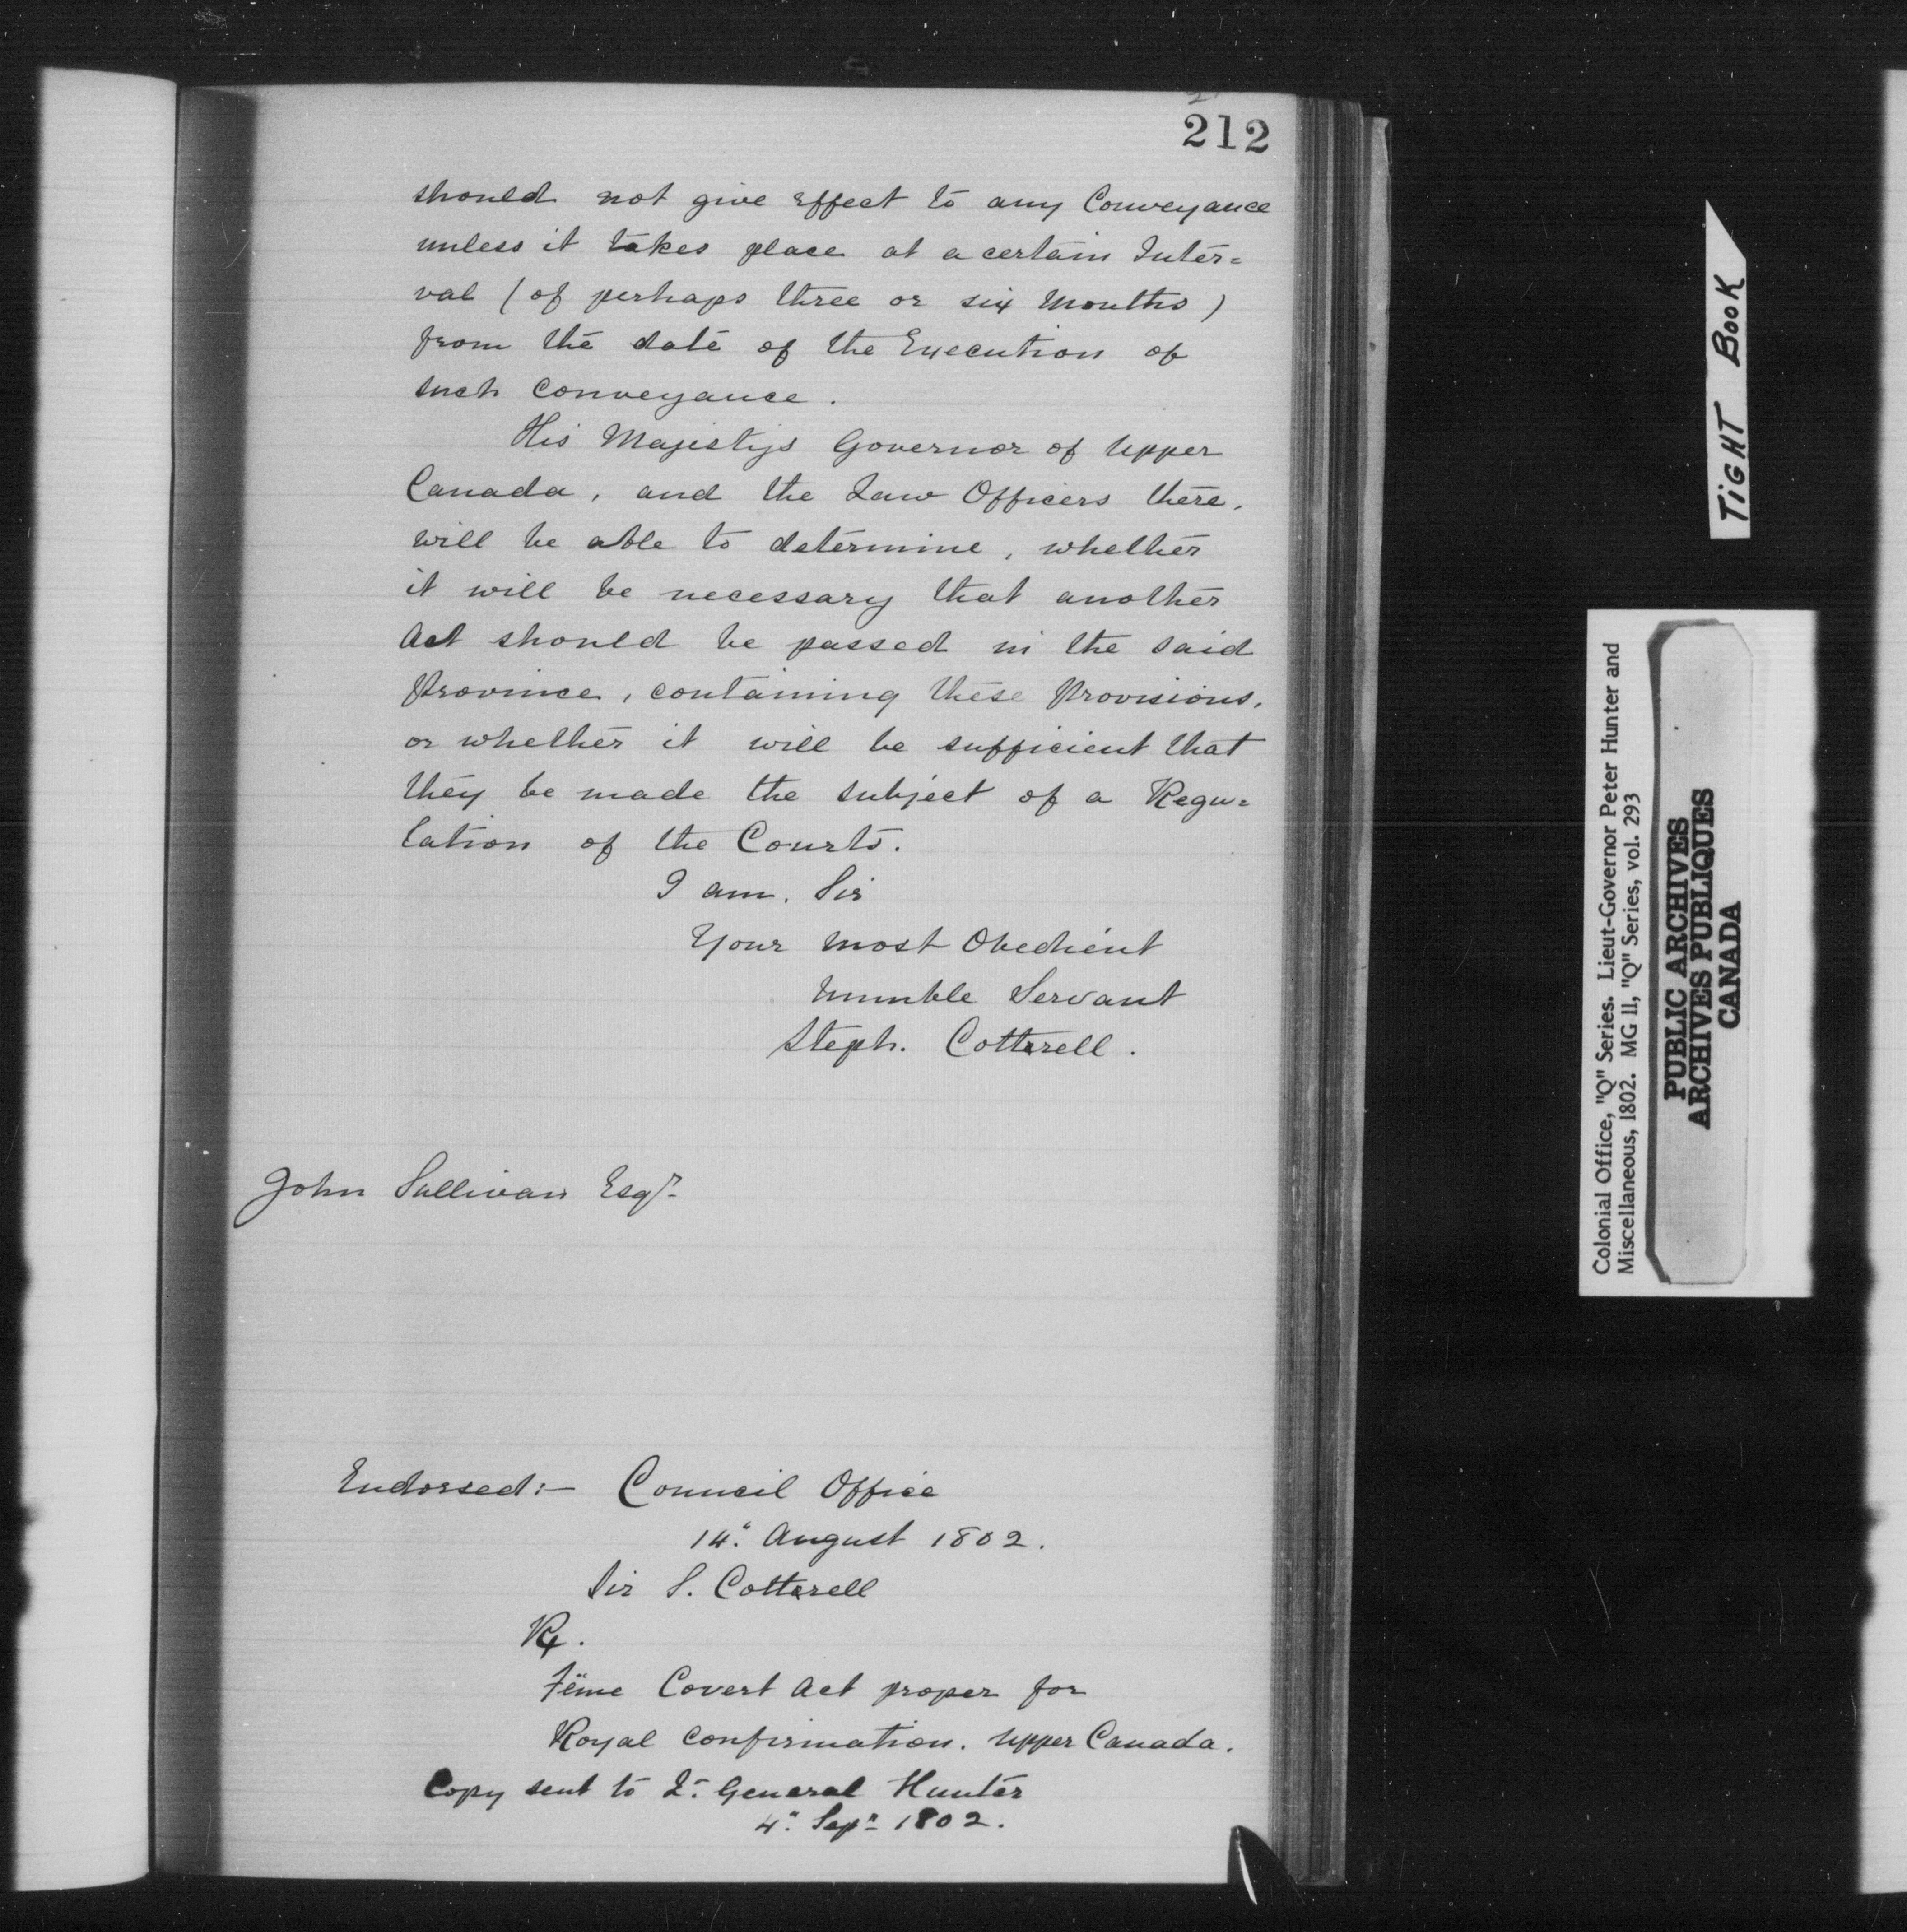 212
should not give effect to any Conveyance
unless it takes place at a certain Inter=
val (of perhaps three or six Months)
from the date of the Execution of
such conveyance.
His Majestys Governor of Upper
Canada, and the Law Officers there,
will be able to determine, whether
it will be necessary that another
Act should be passed in the said
Province, containing these Provisions,
or whether it will be sufficient that
they be made the subject of a Regu=
lation of the Courts.
I am, Sir
Your most Obedient
humble Servant
Steph. Cottrell.
John Sullivan Esqr.
Endorsed:— Council Office
14" August 1802.
Sir S. Cottrell
Rx.
Fême Covert Act proper for
Royal confirmation. Upper Canada.
Copy sent to Lt. General Hunter
4" Sepr. 1802.
TIGHT BOOK
Colonial Office, "Q" Series. Lieut-Governor Peter Hunter and
Miscellaneous, 1802. MG 11, "Q" Series, vol. 293
PUBLIC ARCHIVES
ARCHIVES PUBLIQUES
CANADA